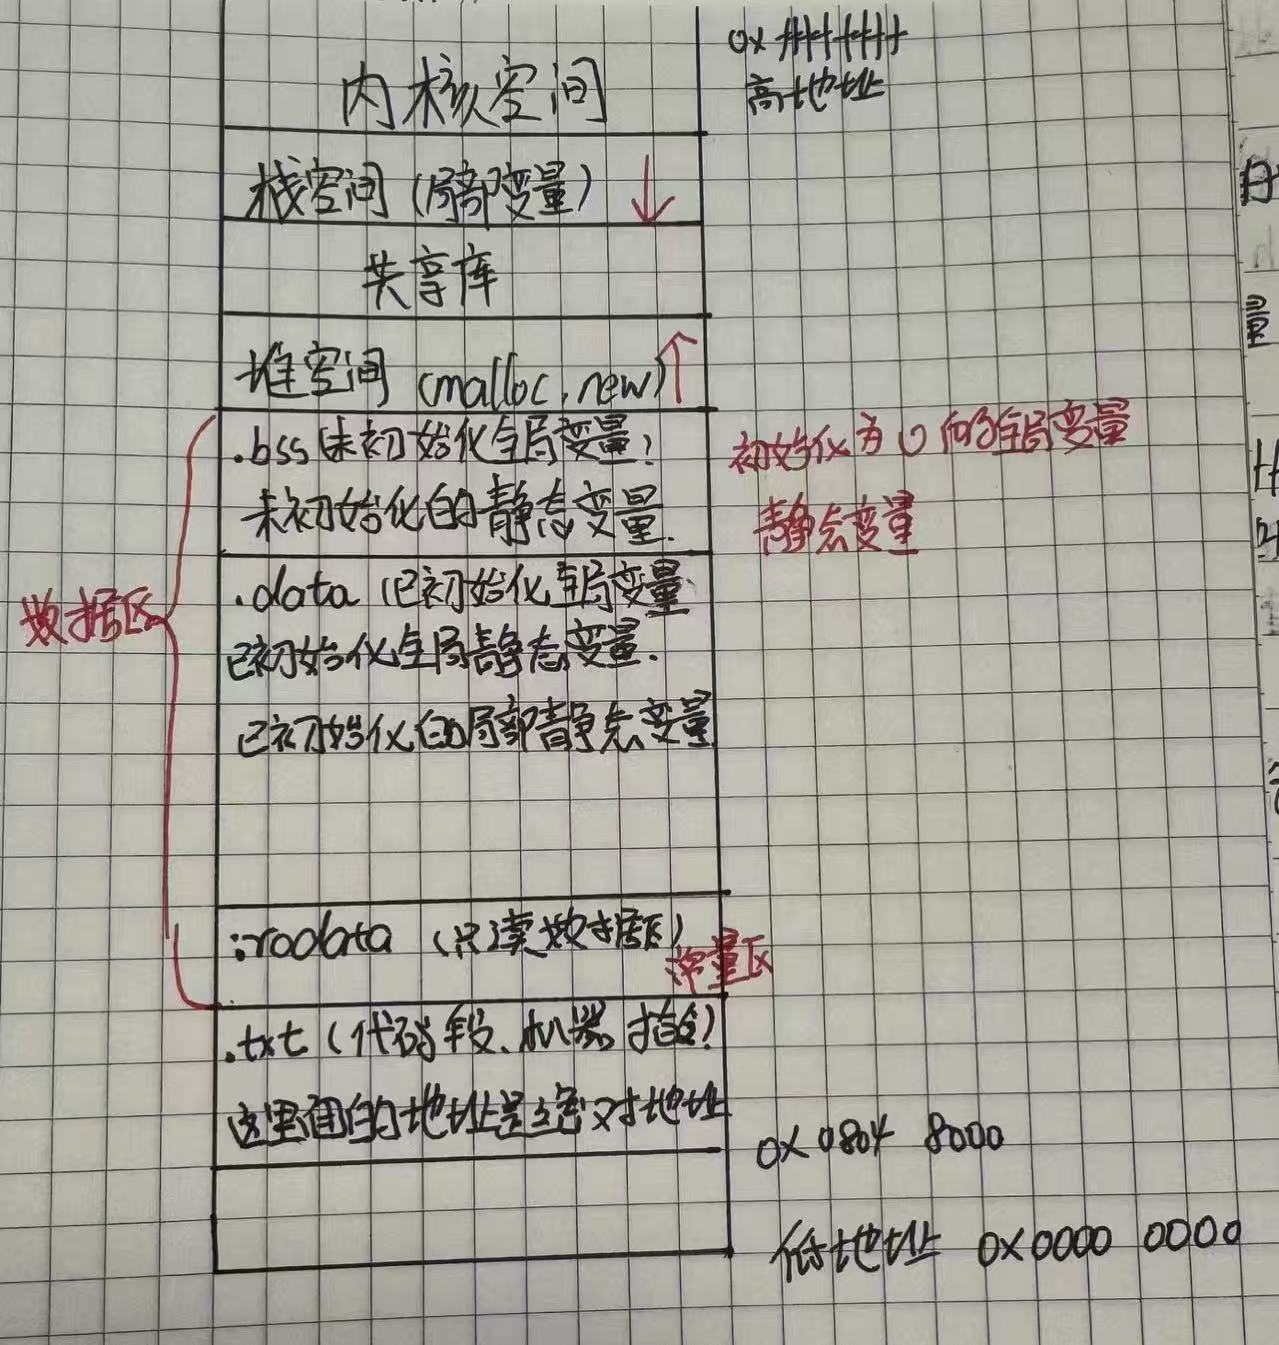 内核空间
0x ffff ffff
高地址
栈空间（局部变量）
共享库
堆空间 (malloc, new)
.bss（未初始化全局变量）
未初始化的静态变量.
初始化为0的全局变量
静态变量
数据区
.data（已初始化全局变量
已初始化全局静态变量.
已初始化的局部静态变量
.rodata（只读数据区）
常量区
.txt（代码段、机器指令）
这里面的地址是绝对地址
0x 0804 8000
低地址 0x0000 0000
量